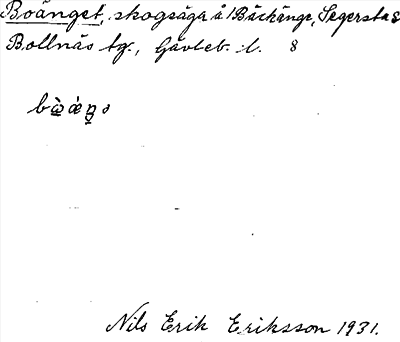 Boänget, skogsäga å 1 Bäckänge, Segersta s
Bollnäs tg., Gävleb. l. 8
Nils Erik Eriksson 1931.